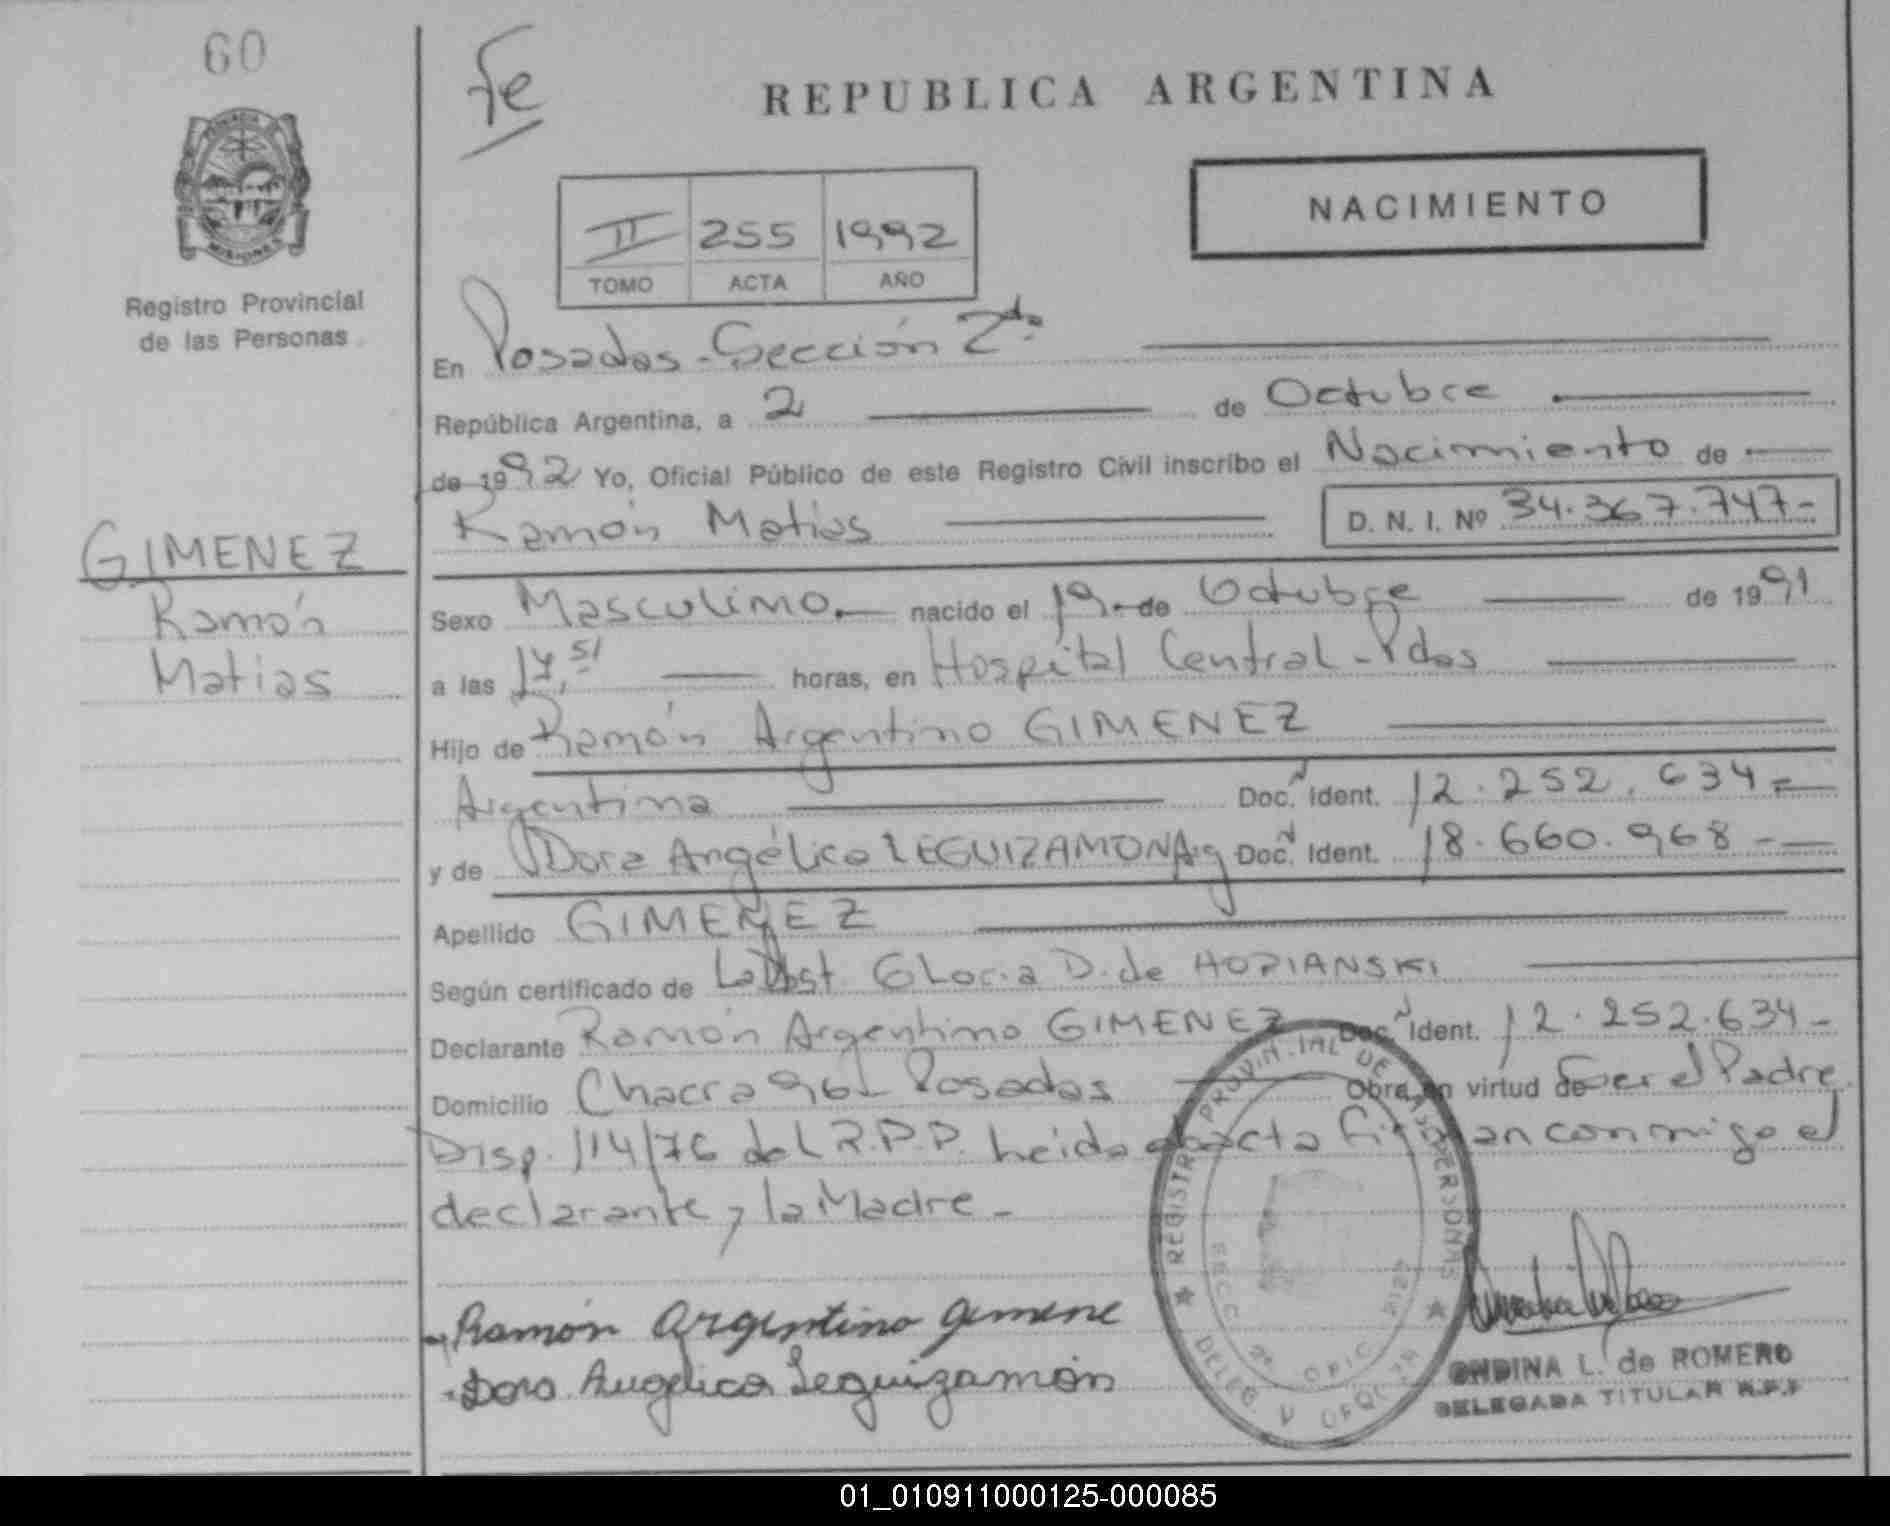 60
Fe
REPUBLICA ARGENTINA
PROVINCIA DE MISIONES
NACIMIENTO
II 255 1992
TOMO ACTA AÑO
Registro Provincial
de las Personas
En Posadas - Sección 2da
República Argentina, a 2 de Octubre
de 1992 Yo, Oficial Público de este Registro Civil inscribo el Nacimiento de
Ramón Matias D. N. I. Nº 34.367.747-
GIMENEZ
Ramón
Matias
Sexo Masculino. nacido el 19. de Octubre de 1991
a las 17,51 horas, en Hospital Central - Pdas
Hijo de Ramón Argentino GIMENEZ
Argentina Doc. Ident. 12.252.634=
y de Dora Angélica LEGUIZAMON Arg Doc. Ident. 18.660.968-
Apellido GIMENEZ
Según certificado de La Obst. Gloria D. de HOPIANSKI
Declarante Ramón Argentino GIMENEZ Doc. Ident. 12.252.634-
Domicilio Chacra 96 - Posadas Obra en virtud de Ser el Padre
Disp. 114/76 del R.P.P. Leida el acta firman conmigo el
declarante y la Madre -
Ramón Argentino Gimene
Dora Angelica Leguizamón
REGISTRO PROVINCIAL DE LAS PERSONAS
SECC 2ª OFIC
DELEG.
ONDINA L. de ROMERO
DELEGADA TITULAR R.P.P
01_010911000125-000085